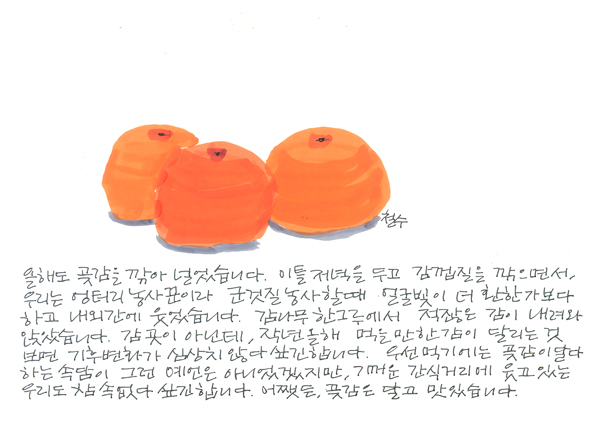 철수
올해도 곶감을 깎아 널었습니다. 이틀 저녁을 두고 감껍질을 깎으면서,
우리는 엉터리 농사꾼이라 군것질 농사할때 얼굴빛이 더 환한가보다
하고 내외간에 웃었습니다. 감나무 한그루에서 적잖은 감이 내려와
앉았습니다. 감 곳이 아닌데, 작년 올해 먹을만한 감이 달리는 것
보면 기후변화가 심상치 않다 싶긴합니다. 우선 먹기에는 곶감이 달다
하는 속담이 그런 예언은 아니었겠지만, 가까운 간식거리에 웃고있는
우리도 참 속없다 싶긴합니다. 어쨌든, 곶감은 달고 맛있습니다.